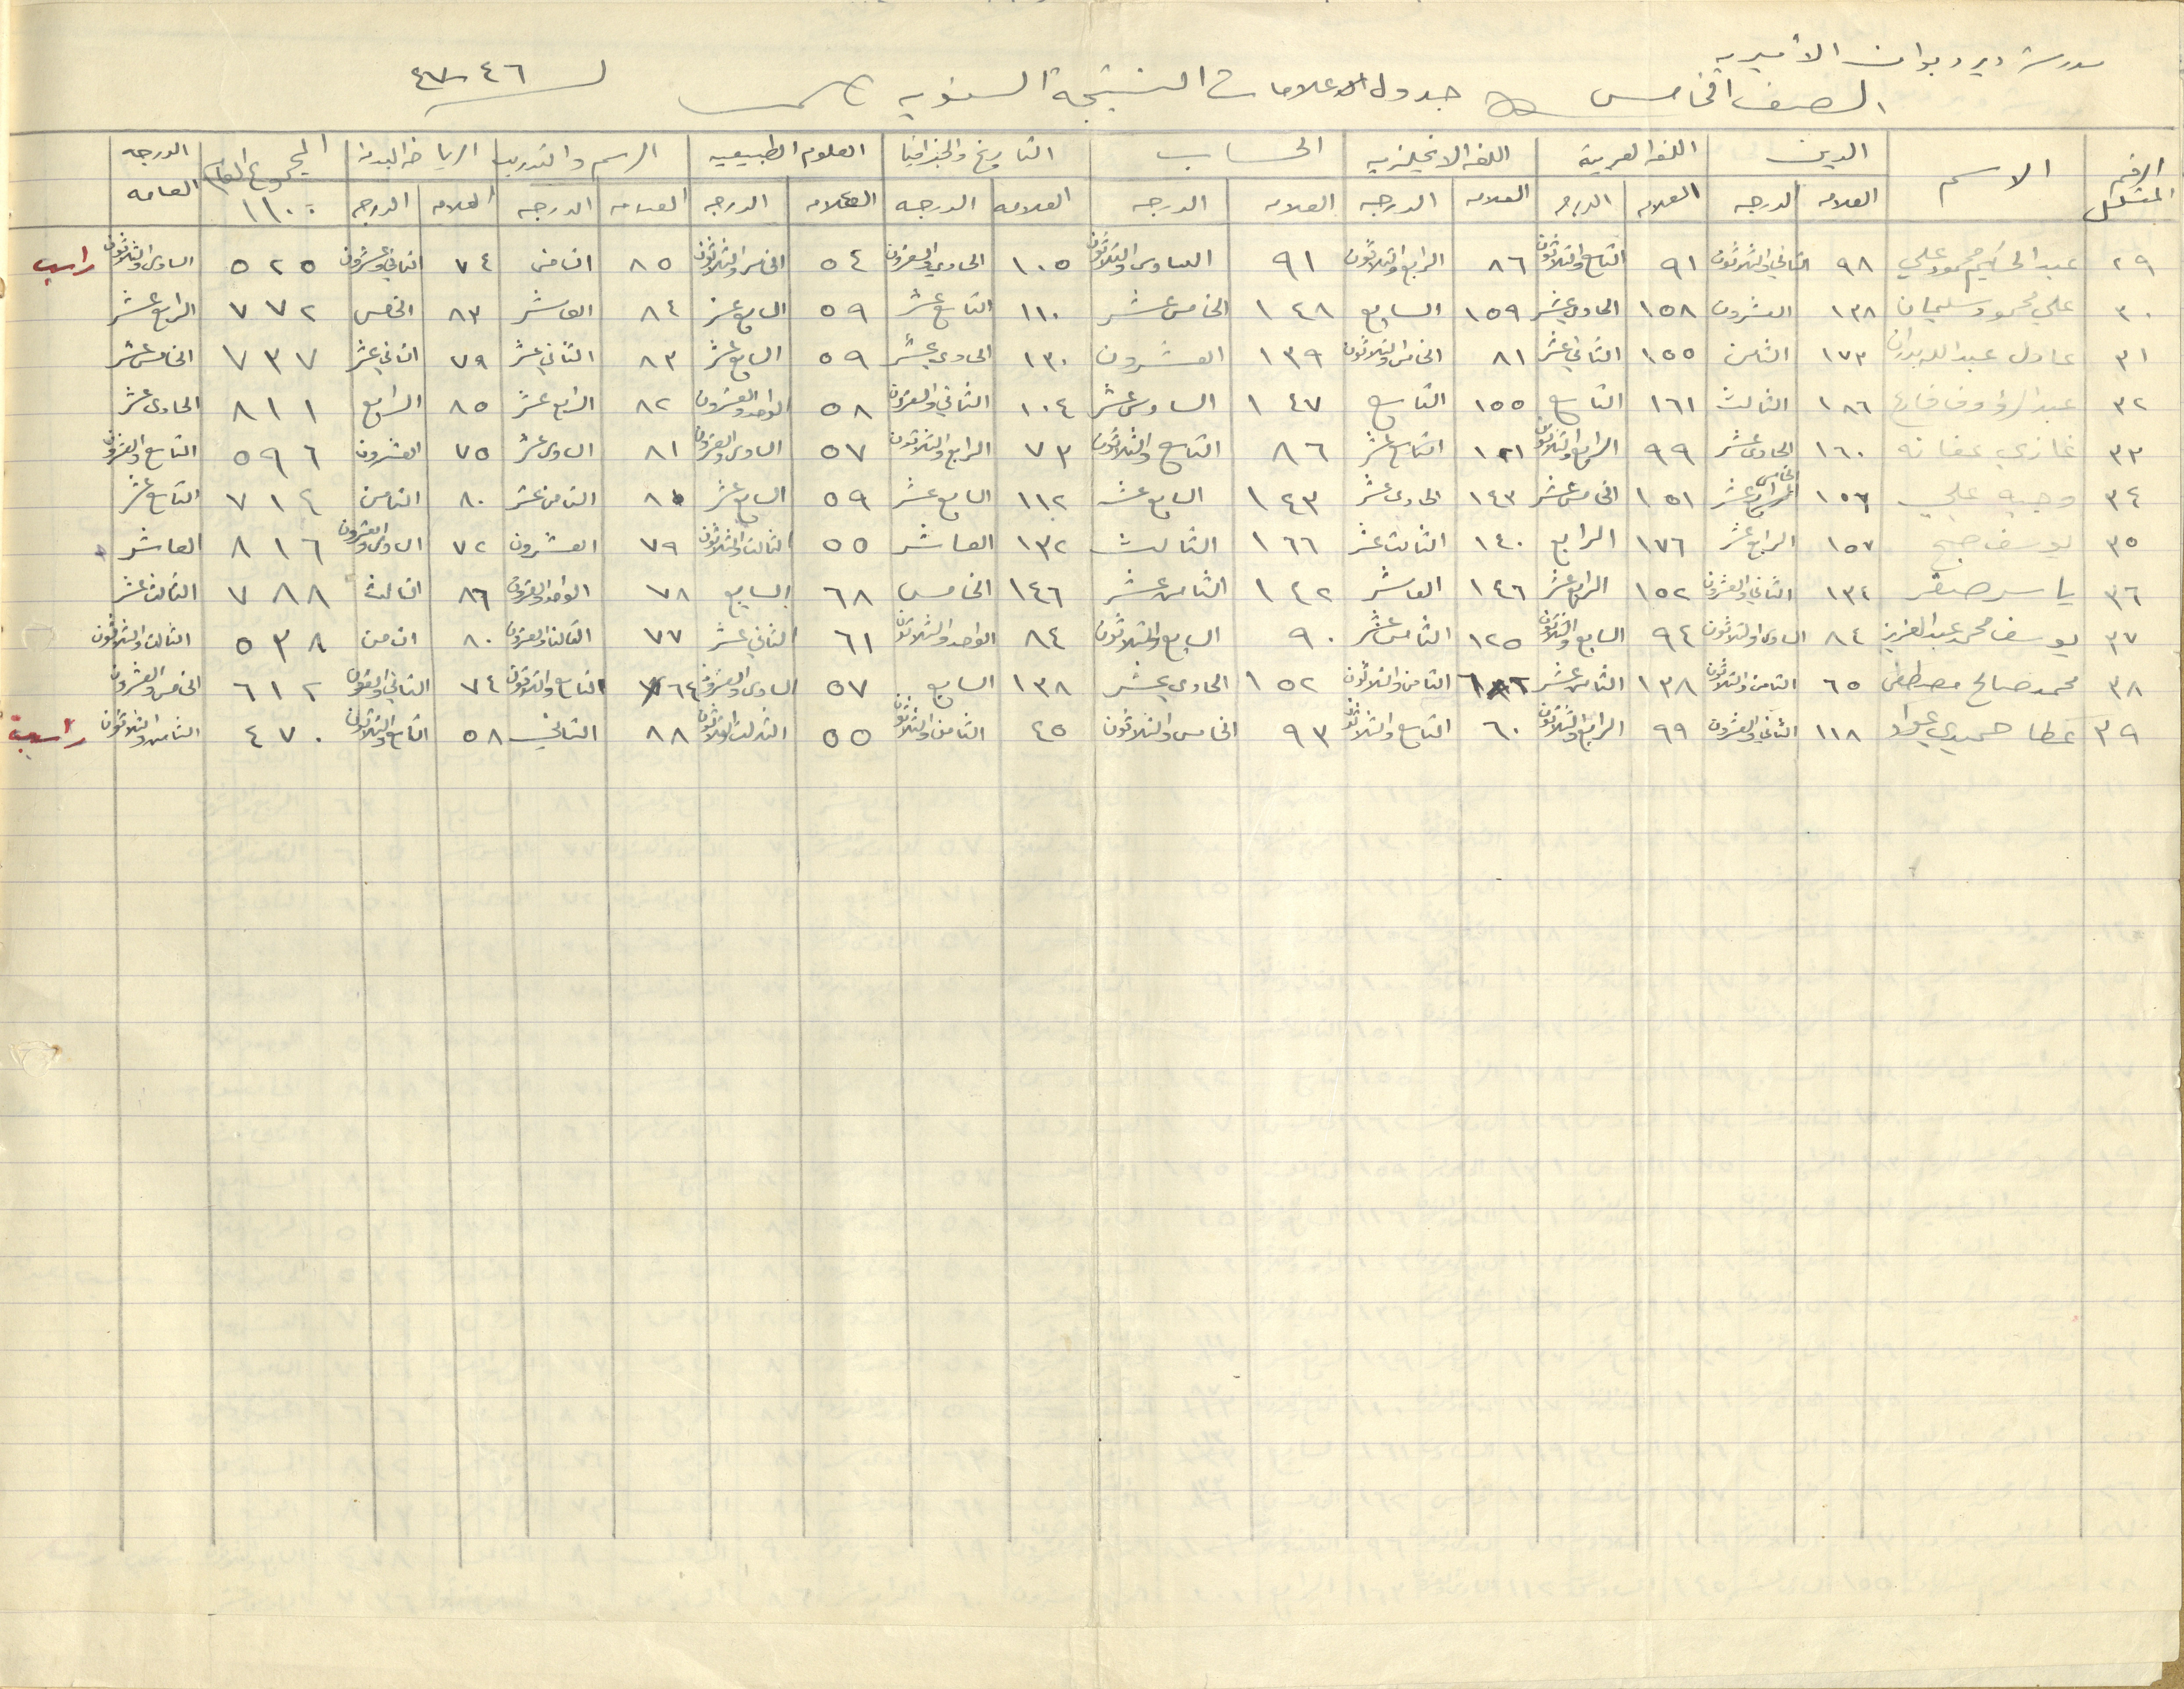 مدرسة دير ديوان الأميرية
الصف الخامس جدول علامات النتيجة السنوية لسنة ٤٦-٤٧
الرقم المتسلسل الاسم الدين اللغة العربية اللغه الانجليزيه الحساب التاريخ والجغرافيا العلوم الطبيعيه الرسم والتدريب الرياضه البدنية المجموع العام ١١٠٠ الدرجه العامه
العلامه الدرجه العلامه الدرجه العلامه الدرجه العلامه الدرجه العلامه الدرجه العلامه الدرجه العلامه الدرجه العلامه الدرجه
٢٩ عبد الحكيم محمود علي ٩٨ الثاني والثلاثون ٩١ التاسع والثلاثون ٨٦ الرابع والثلاثون ٩١ السادس والثلاثون ١٠٥ الحادي والعشرون ٥٤ الخامس والثلاثون ٨٥ الثامن ٧٤ الثاني والعشرون ٥٢٥ السادس والثلاثون راسب
٣٠ علي محمود سليمان ١٣٨ العشرون ١٥٨ الحادي عشر ١٥٩ السابع ١٤٨ الخامس عشر ١١٠ التاسع عشر ٥٩ السابع عشر ٨٤ العاشر ٨٣ الخامس ٧٧٢ الرابع عشر
٣١ عادل عبد الله بدران ١٧٣ الثامن ١٥٥ الثاني عشر ٨١ الخامس والثلاثون ١٣٩ العشرون ١٣٠ الحادي عشر ٥٩ السابع عشر ٨٣ الثاني عشر ٧٩ الثاني عشر ٧٣٧ الخامس عشر
٣٢ عبد الرؤوف فارع ١٨٦ الثالث ١٦١ التاسع ١٥٥ التاسع ١٤٧ السادس عشر ١٠٤ الثاني والعشرون ٥٨ الواحد والعشرون ٨٢ الرابع عشر ٨٥ الرابع ٨١١ الحادي عشر
٣٣ غازي عفانه ١٦٠ الحادي عشر ٩٩ الرابع والثلاثون ١٢١ التاسع عشر ٨٦ التاسع والثلاثون ٧٣ الرابع والثلاثون ٥٧ السادس والعشرون ٨١ السادس عشر ٧٥ العشرون ٥٩٦ التاسع والعشرون
٣٤ وجيه علي ١٥٦ الخامس عشر ١٥١ الخامس عشر ١٤٣ الحادي عشر ١٢٣ السابع عشر ١١٢ السابع عشر ٥٩ السابع عشر ٨٠ الثامن عشر ٨٠ الثامن ٧١٤ التاسع عشر
٣٥ يوسف صبح ١٥٧ الرابع عشر ١٧٦ الرابع ١٤٠ الثالث عشر ١٦٦ الثالث ١٣٢ العاشر ٥٥ الثالث والثلاثون ٧٩ العشرون ٧٢ السادس والعشرون ٨١٦ العاشر
٣٦ ياسر صقر ١٣٤ الثاني والعشرون ١٥٢ الرابع عشر ١٤٦ العاشر ١٤٢ الثامن عشر ١٤٦ الخامس ٦٨ السابع ٧٨ الواحد والعشرون ٨٦ الثالث ٧٨٨ الثالث عشر
٣٧ يوسف محمد عبد العزيز ٨٤ السادس والثلاثون ٩٤ السابع والثلاثون ١٢٥ الثامن عشر ٩٠ السابع والثلاثون ٨٤ الواحد والثلاثون ٦١ الثاني عشر ٧٧ الثالث والعشرون ٨٠ الثامن ٥٣٨ الثالث والثلاثون
٣٨ محمد صالح مصطفى ٦٥ الثامن والثلاثون ١٣٨ الثامن عشر ٦٦ الثامن والثلاثون ١٥٢ الحادي عشر ١٣٨ السابع ٥٧ السادس والعشرون ٦٤ التاسع والثلاثون ٧٤ الثاني والعشرون ٦١٢ الخامس والعشرون
٣٩ عطا حميدي عواد ١١٨ الثاني والعشرون ٩٩ الرابع والثلاثون ٦٠ التاسع والثلاثون ٩٣ الخامس والثلاثون ٤٥ الثامن والثلاثون ٥٥ الثالث والثلاثون ٨٨ الثاني ٥٨ التاسع والثلاثون ٤٧٠ الثامن والثلاثون راسب